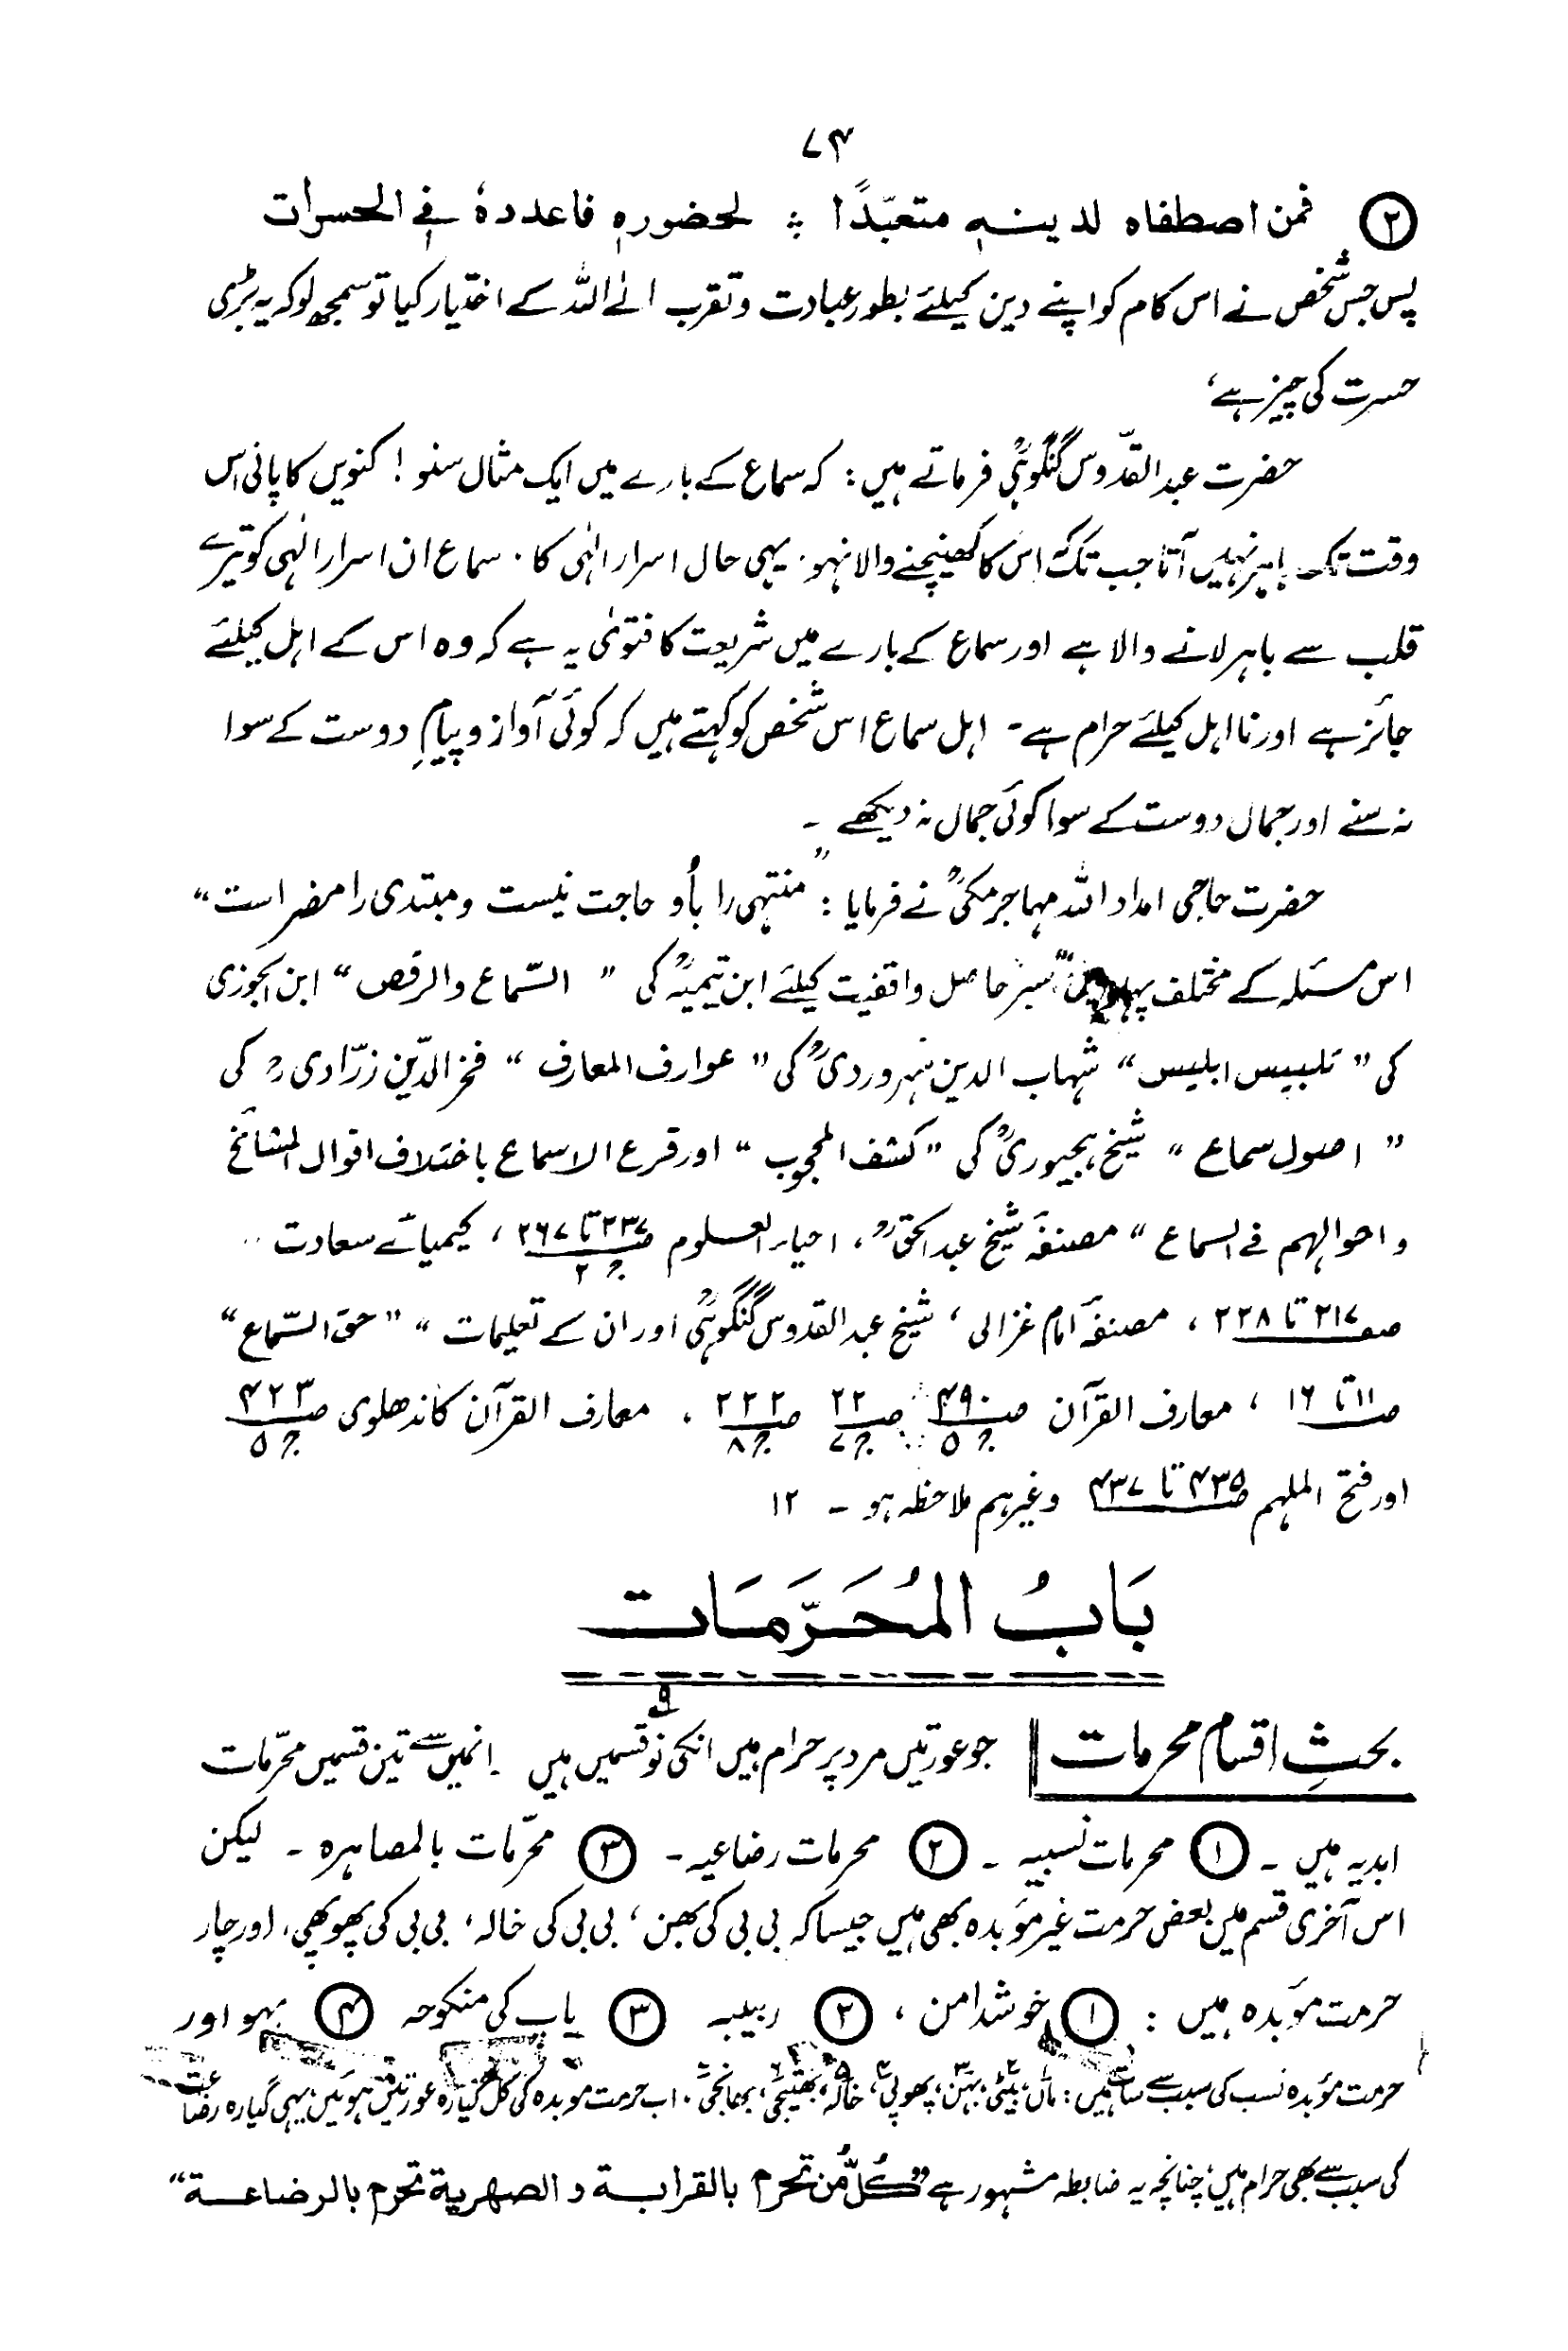 ۷۴
② فمن اصطفاہ لدینہٖ متعبّدًا ؞ لحضورہٖ فاعددہٗ فے الحسرات
پس جس شخص نے اس کام کو اپنے دین کیلئے بطور عبادت وتقرب الے اللہ کے اختیار کیا تو سمجھ لو کہ یہ بڑی
حسرت کی چیز ہے،
حضرت عبد القدّوس گنگوہیؒ فرماتے ہیں : کہ سماع کے بارے میں ایک مثال سنو ! کنویں کا پانی اس
وقت تک باہر نہیں آتا جب تک اس کا کھینچنے والا نہو۔ یہی حال اسرار الٰہی کا۔ سماع ان اسرار الٰہی کو تیرے
قلب سے باہر لانے والا ہے اور سماع کے بارے میں شریعت کا فتویٰ یہ ہے کہ وہ اس کے اہل کیلئے
جائز ہے اور نا اہل کیلئے حرام ہے ۔ اہل سماع اس شخص کو کہتے ہیں کہ کوئی آواز و پیامِ دوست کے سوا
نہ سنے اور جمال دوست کے سوا کوئی جمال نہ دیکھے ۔
حضرت حاجی امداد اللہ مہاجر مکیؒ نے فرمایا : "منتہی را بأو حاجت نیست و مبتدی را مضر است"
اس مسئلہ کے مختلف سیر حاصل واقفیت کیلئے ابن تیمیہؒ کی " السّماع والرقص " ابن الجوزی
کی " تلبیس ابلیس " شہاب الدین سہروردیؒ کی " عوارف المعارف " فخر الدّین زرّادی رح کی
" اصول سماع " شیخ ہجیوریؒ کی " کشف المحجوب " اور قرع الاسماع باختلاف اقوال المشائخ
و احوالہم فے السماع " مصنفۂ شیخ عبد الحقؒ ، احیاء العلوم صـ ۲۳۷ تا ۲۶۷ ج ۲ ، کیمیائے سعادت ..
صـ ۲۱۷ تا ۲۲۸ ، مصنفۂ امام غزالی ، شیخ عبد القدوس گنگوہیؒ اور ان کے تعلیمات " " حق السّماع "
صـ ۱۱ تا ۱۶ ، معارف القرآن صـ ۴۹۰ ج ۵ صـ ۲۲ ج ۷ صـ ۲۲۲ ج ۸ ، معارف القرآن کاندھلوی صـ ۴۲۳ ج ۵
اور فتح الملہم صـ ۴۳۵ تا ۴۳۷ وغیرہم ملاحظہ ہو ۔ ۱۲
بَابُ المُحَرَّمَات
بحثِ اقسام محرمات جو عورتیں مرد پر حرام ہیں انکی نو ۹ قسمیں ہیں ۔ انمیں سے تین قسمیں محرّمات
ابدیہ ہیں ۔ ① محرمات نسبیہ ۔ ② محرمات رضاعیہ ۔ ③ محرّمات بالمصاہرہ ۔ لیکن
اس آخری قسم میں بعض حرمت غیر مؤبدہ بھی ہیں جیسا کہ بی بی کی بھن ، بی بی کی خالہ ، بی بی کی پھوپھی ، اور چار
حرمت مؤبدہ ہیں : ① خوشدامن ، ② ربیبہ ③ باپ کی منکوحہ ④ بہو اور
حرمت مؤبدہ نسب کی سبب سے سات ہیں : ماں۱ ، بیٹی۲ ، بہن۳ ، پھوپی۴ ، خالہ۵ ، بھتیجی۶ ، بھانجی۷ ۔ اب حرمت موبدہ کی کل گیارہ عورتیں ہوئیں یہی گیارہ رضاعت
کی سبب سے بھی حرام ہیں ، چنانچہ یہ ضابطہ مشہور ہے " کُلُّ مُن تحرم بالقرابة والصهرية تحرم بالرضاعة "